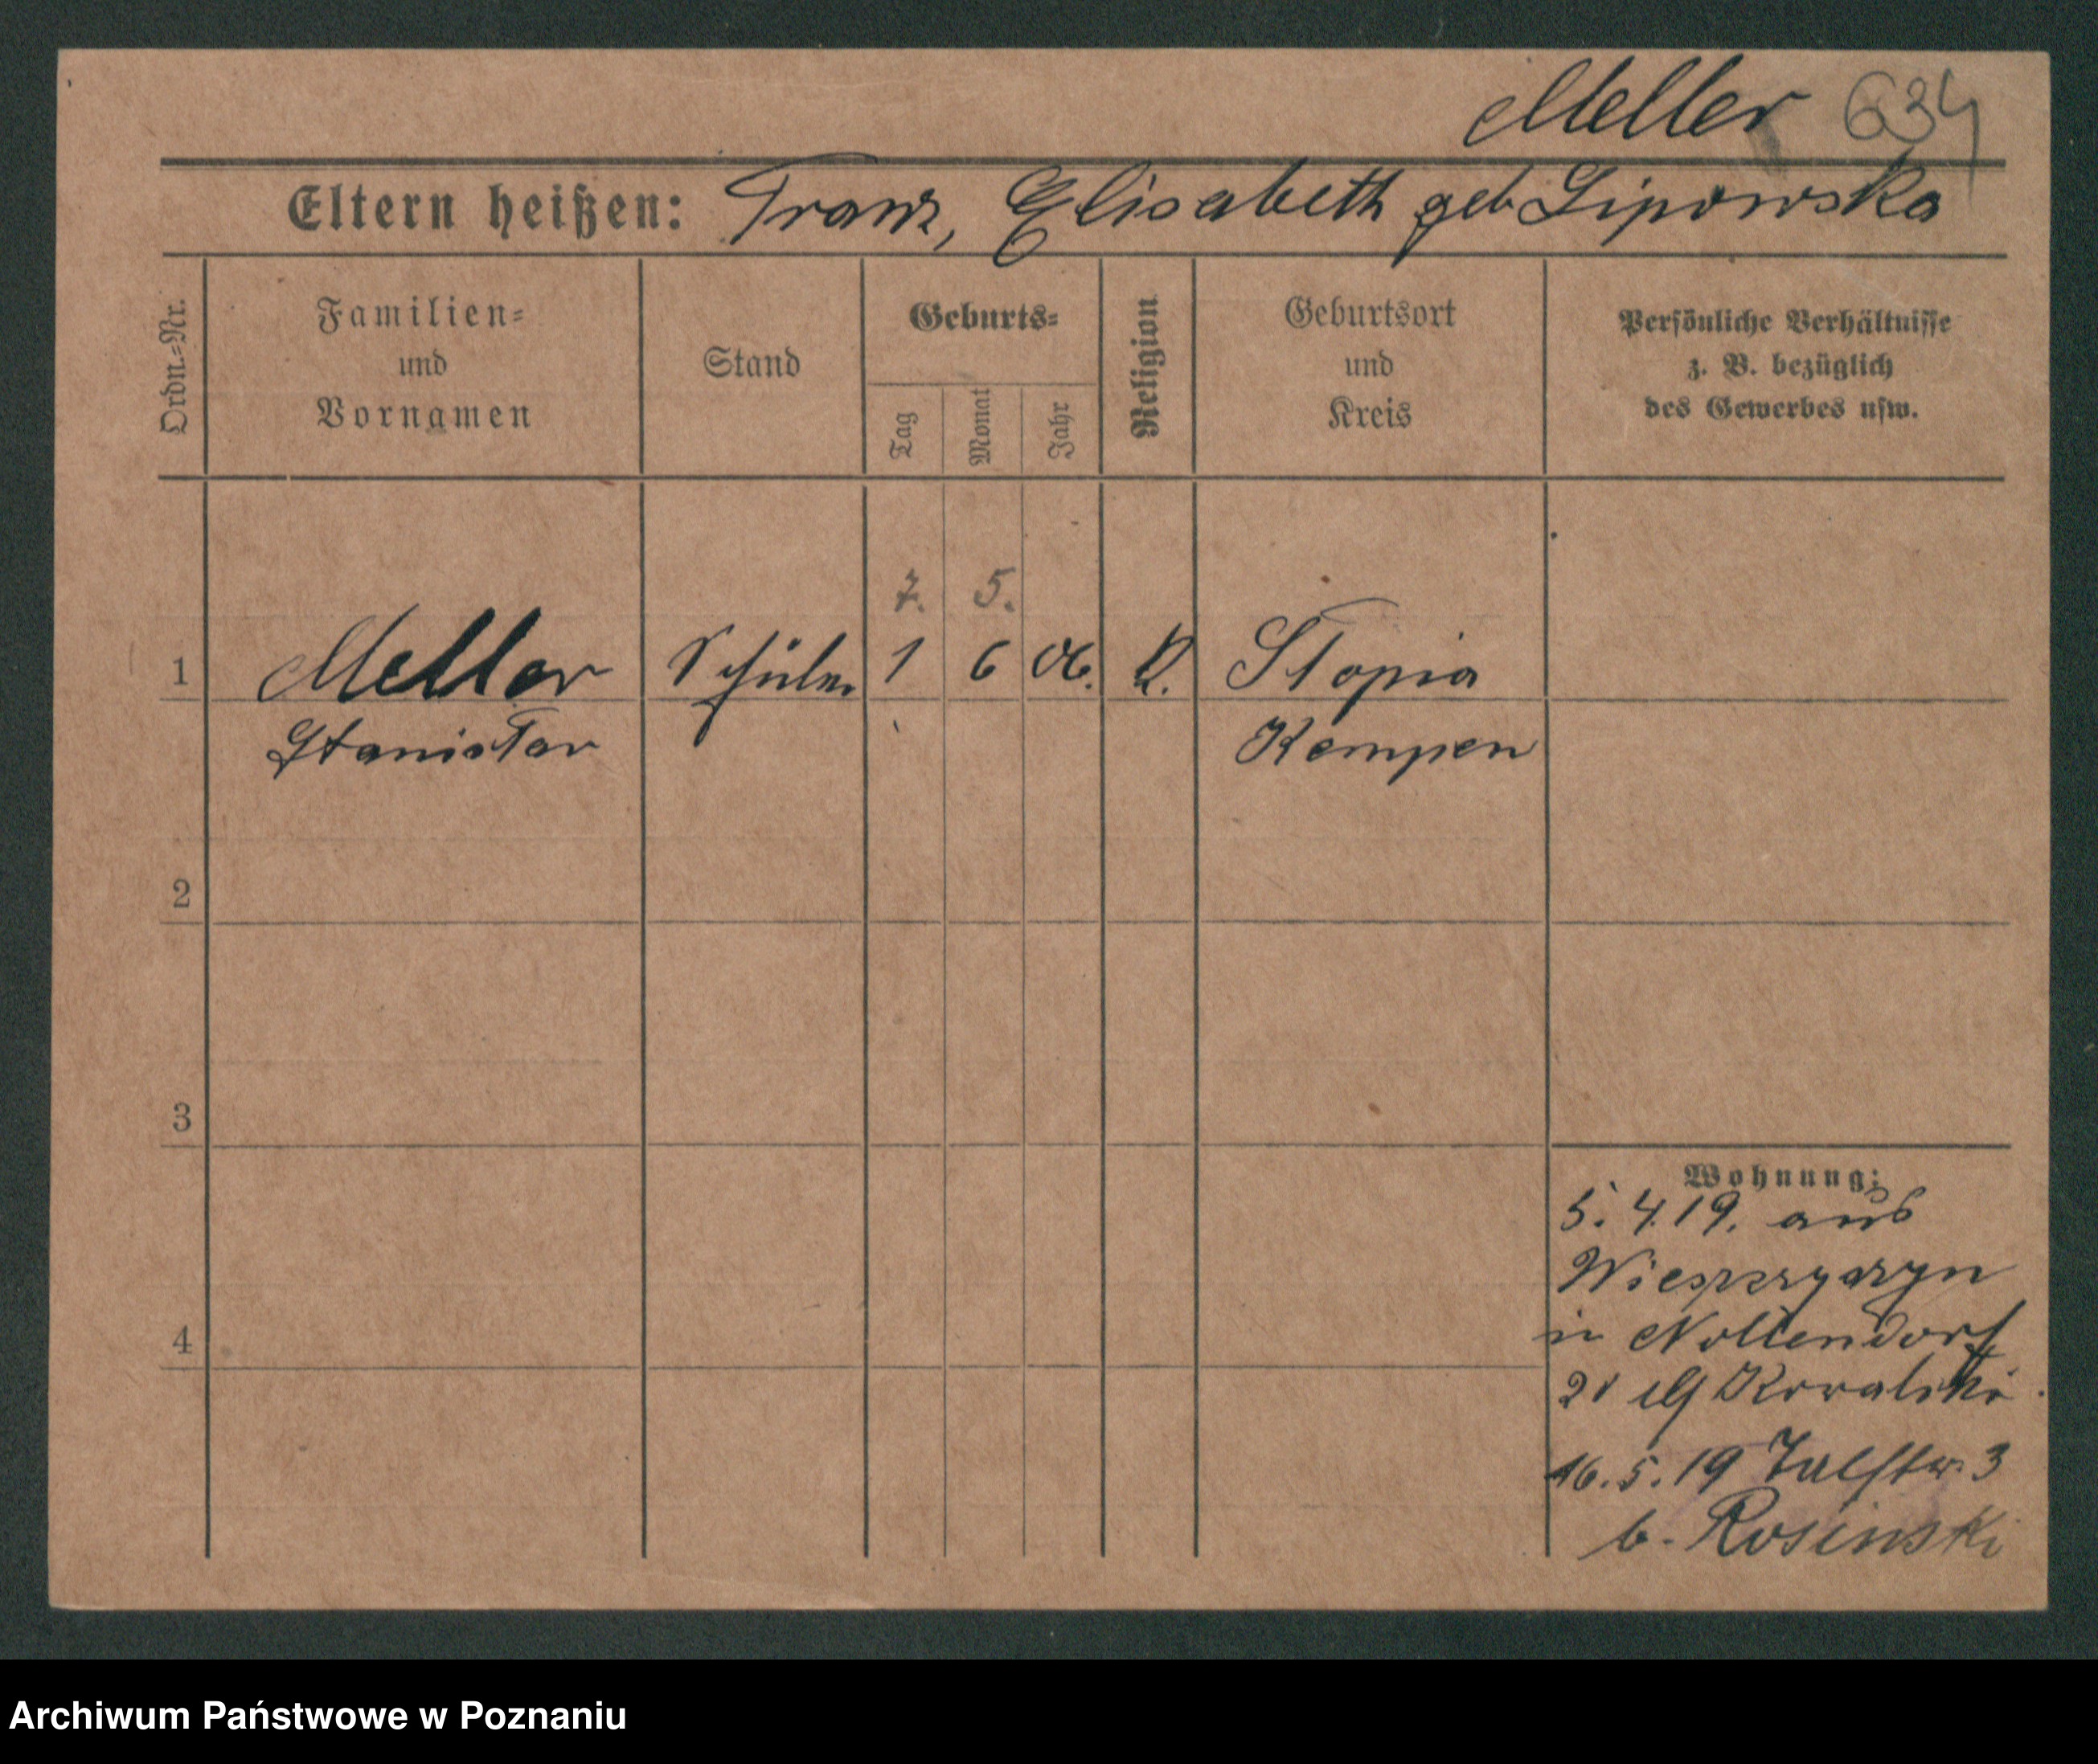 Meller 634
Eltern heißen: Franz, Elisabeth geb Lipowska
Ordn.-Nr.
Familien-
und
Vornamen
Stand
Geburts-
Tag
Monat
Jahr
Religion
Geburtsort
und
Kreis
Persönliche Verhältnisse
z. B. bezüglich
des Gewerbes usw.
7. 5.
1 Meller Schüler 1 6 06. K. Slopia
Stanislav Kempen
2
3
4
Wohnung:
5. 4. 19. aus
in Nollendorf
21 Kowalski
16. 5. 19 3
b. Rosinski
Archiwum Państwowe w Poznaniu